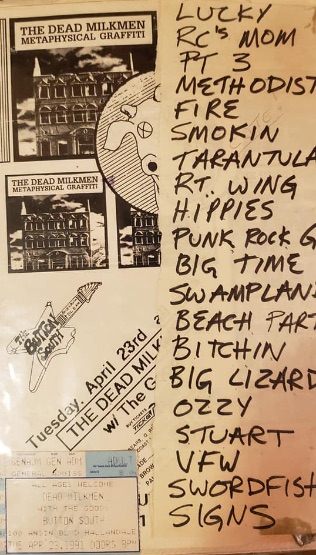 THE DEAD MILKMEN
METAPHYSICAL GRAFFITI
THE DEAD MILKMEN
METAPHYSICAL GRAFFITI
THE
BUTTON
SOUTH
Tuesday, April 23rd
THE DEAD MILK
w/ The G
GENADM GEN ADM
ALL AGES WELCOME
DEAD MILKMEN
WITH THE GOODS
BUTTON SOUTH
HALLANDALE
TUE APR 23,1991 DOORS 8PM
LUCKY
RC'S MOM
PT 3
METHODIST
FIRE
SMOKIN
TARANTULA
RT. WING
HIPPIES
PUNK ROCK G
BIG TIME
SWAMPLAN
BEACH PART
BITCHIN
BIG LIZARD
OZZY
STUART
VFW
SWORDFISH
SIGNS